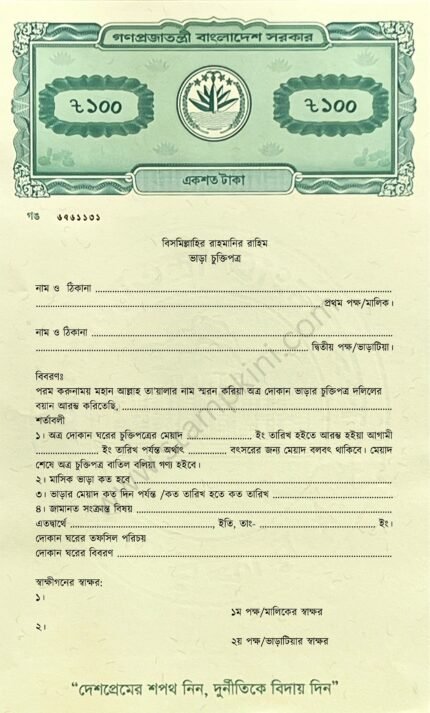 গণপ্রজাতন্ত্রী বাংলাদেশ সরকার
৳১০০ ৳১০০
একশত টাকা
গঙ ৬৭৬১১৩১
বিসমিল্লাহির রাহমানির রাহিম
ভাড়া চুক্তিপত্র
নাম ও ঠিকানা ........................................
........................................ প্রথম পক্ষ/মালিক।
নাম ও ঠিকানা ........................................
........................................ দ্বিতীয় পক্ষ/ভাড়াটিয়া।
বিবরণঃ
পরম করুনাময় মহান আল্লাহ তা'য়ালার নাম স্মরন করিয়া অত্র দোকান ভাড়ার চুক্তিপত্র দলিলের
বয়ান আরম্ভ করিতেছি, ........................................
শর্তাবলী
১। অত্র দোকান ঘরের চুক্তিপত্রের মেয়াদ .................... ইং তারিখ হইতে আরম্ভ হইয়া আগামী
.................... ইং তারিখ পর্যন্ত অর্থাৎ .................... বৎসরের জন্য মেয়াদ বলবৎ থাকিবে। মেয়াদ
শেষে অত্র চুক্তিপত্র বাতিল বলিয়া গণ্য হইবে।
২। মাসিক ভাড়া কত হবে ........................................
৩। ভাড়ার মেয়াদ কত দিন পর্যন্ত /কত তারিখ হতে কত তারিখ ....................
৪। জামানত সংক্রান্ত বিষয় ........................................
এতদ্বার্থে .............................., ইতি, তাং- .............................. ইং।
দোকান ঘরের তফসিল পরিচয়
দোকান ঘরের বিবরণ ........................................
স্বাক্ষীগনের স্বাক্ষর:
১।
১ম পক্ষ/মালিকের স্বাক্ষর
২।
২য় পক্ষ/ভাড়াটিয়ার স্বাক্ষর
"দেশপ্রেমের শপথ নিন, দুর্নীতিকে বিদায় দিন"
www.stampkini.com